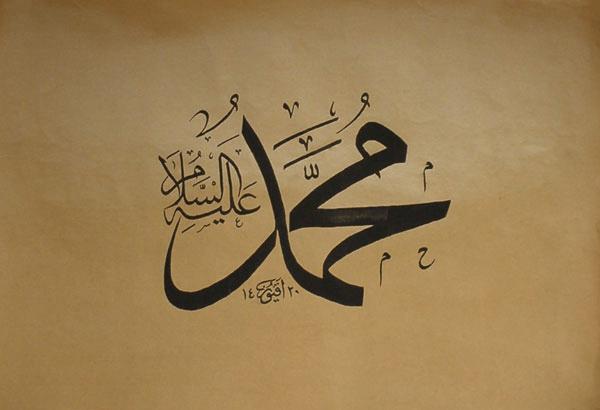 محمد
عليه السلام
١٤٢٠